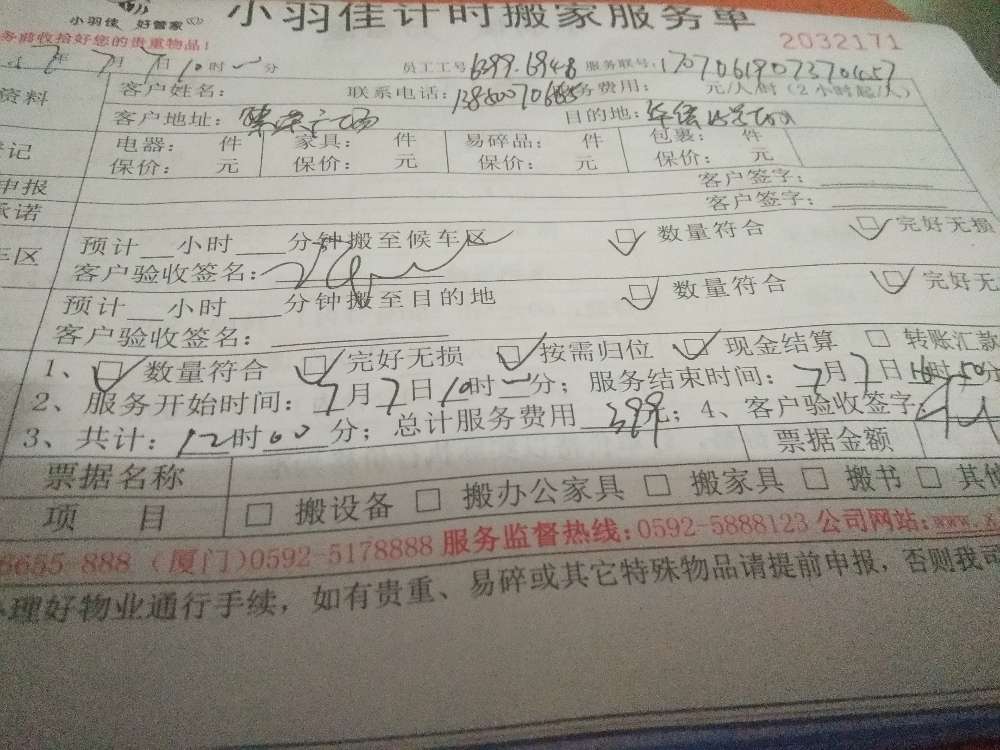 小羽佳计时搬家服务单
小羽佳 好管家
务necessary收拾好您的贵重物品!
2032171
年 7月7日10时 分 员工工号6399.6948 服务联号:
资料 客户姓名: 联系电话: 务费用: 元/人/时(2小时起/人)
客户地址: 广场 目的地:
登记 电器: 件 家具: 件 易碎品: 件 包裹: 件
保价: 元 保价: 元 保价: 元 保价: 元
申报 客户签字:
承诺 客户签字:
车区 预计__小时___分钟搬至候车区 数量符合 完好无损
客户验收签名:
预计__小时___分钟搬至目的地 数量符合 完好无
客户验收签名:
1、 数量符合 完好无损 按需归位 现金结算 转账汇款
2、服务开始时间:7月7日10时 分;服务结束时间:7月7日 时50分
3、共计:12时00分;总计服务费用 399元;4、客户验收签字
票据名称 票据金额
项 目 搬设备 搬办公家具 搬家具 搬书 其他
8655-888 (厦门)0592-5178888 服务监督热线:0592-5888123 公司网站:www.x
办理好物业通行手续,如有贵重、易碎或其它特殊物品请提前申报,否则我司